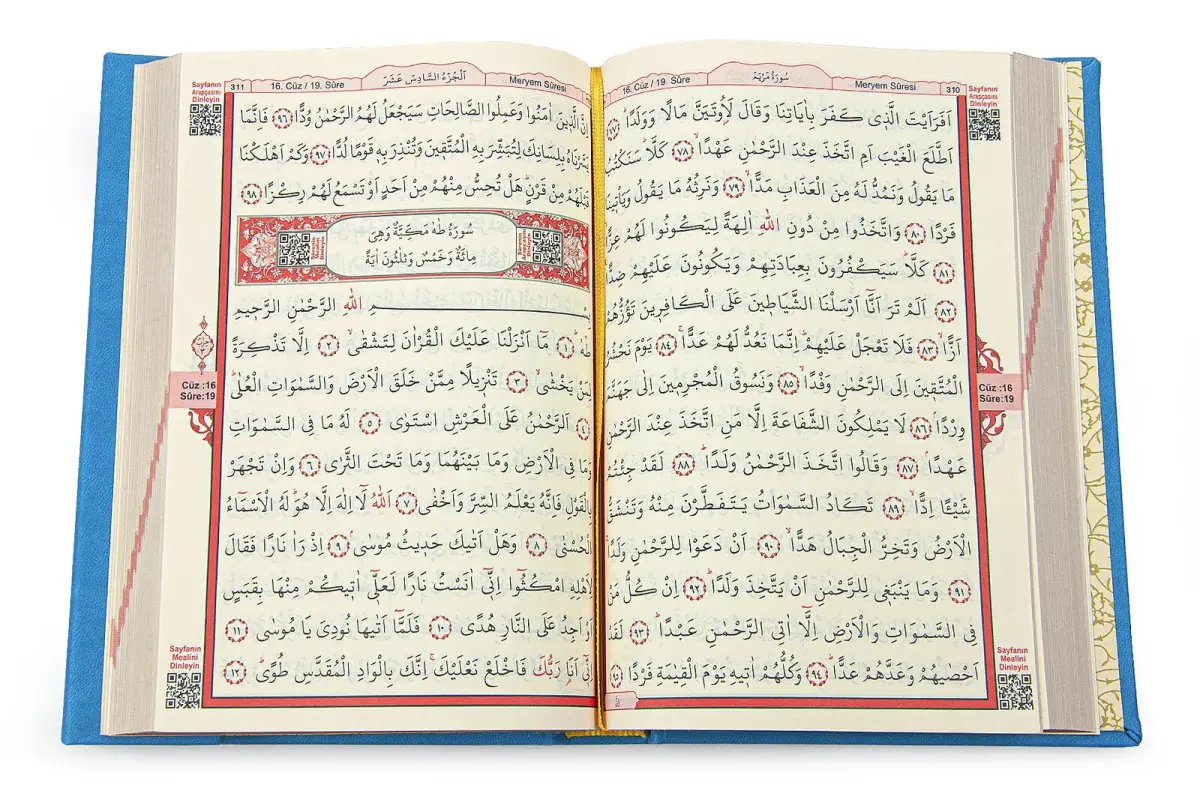 سُورَةُ مَرْيَمَ
16. Cüz / 19. Sûre
Meryem Sûresi
310
Sayfanın
Arapçasını
Dinleyin
اَفَرَاَيْتَ الَّذ۪ي كَفَرَ بِاٰيَاتِنَا وَقَالَ لَاُو۫تَيَنَّ مَالًا وَوَلَدًاۜ ﴿٧٧﴾
اَطَّلَعَ الْغَيْبَ اَمِ اتَّخَذَ عِنْدَ الرَّحْمٰنِ عَهْدًاۙ ﴿٧٨﴾ كَلَّاۜ سَنَكْتُبُ
مَا يَقُولُ وَنَمُدُّ لَهُ مِنَ الْعَذَابِ مَدًّاۙ ﴿٧٩﴾ وَنَرِثُهُ مَا يَقُولُ وَيَأْت۪ينَا
فَرْدًا ﴿٨٠﴾ وَاتَّخَذُوا مِنْ دُونِ اللّٰهِ اٰلِهَةً لِيَكُونُوا لَهُمْ عِزًّاۙ
﴿٨١﴾ كَلَّاۜ سَيَكْفُرُونَ بِعِبَادَتِهِمْ وَيَكُونُونَ عَلَيْهِمْ ضِدًّا۟
﴿٨٢﴾ اَلَمْ تَرَ اَنَّٓا اَرْسَلْنَا الشَّيَاط۪ينَ عَلَى الْكَافِر۪ينَ تَؤُزُّهُمْ
اَزًّاۙ ﴿٨٣﴾ فَلَا تَعْجَلْ عَلَيْهِمْۜ اِنَّمَا نَعُدُّ لَهُمْ عَدًّاۚ ﴿٨٤﴾ يَوْمَ نَحْشُرُ
الْمُتَّق۪ينَ اِلَى الرَّحْمٰنِ وَفْدًاۙ ﴿٨٥﴾ وَنَسُوقُ الْمُجْرِم۪ينَ اِلٰى جَهَنَّمَ
وِرْدًاۢ ﴿٨٦﴾ لَا يَمْلِكُونَ الشَّفَاعَةَ اِلَّا مَنِ اتَّخَذَ عِنْدَ الرَّحْمٰنِ
عَهْدًاۢ ﴿٨٧﴾ وَقَالُوا اتَّخَذَ الرَّحْمٰنُ وَلَدًاۜ ﴿٨٨﴾ لَقَدْ جِئْتُمْ
شَيْـًٔا اِدًّاۙ ﴿٨٩﴾ تَكَادُ السَّمٰوَاتُ يَتَفَطَّرْنَ مِنْهُ وَتَنْشَقُّ
الْاَرْضُ وَتَخِرُّ الْجِبَالُ هَدًّاۙ ﴿٩٠﴾ اَنْ دَعَوْا لِلرَّحْمٰنِ وَلَدًاۚ
﴿٩١﴾ وَمَا يَنْبَغ۪ي لِلرَّحْمٰنِ اَنْ يَتَّخِذَ وَلَدًاۜ ﴿٩٢﴾ اِنْ كُلُّ مَنْ
فِي السَّمٰوَاتِ وَالْاَرْضِ اِلَّٓا اٰتِي الرَّحْمٰنِ عَبْدًاۜ ﴿٩٣﴾ لَقَدْ
اَحْصٰيهُمْ وَعَدَّهُمْ عَدًّاۜ ﴿٩٤﴾ وَكُلُّهُمْ اٰت۪يهِ يَوْمَ الْقِيٰمَةِ فَرْدًا ﴿٩٥﴾
Cüz :16
Sûre:19
Sayfanın
Mealini
Dinleyin
اَلْجُزْءُ السَّادِسَ عَشَرَ
311
16. Cüz / 19. Sûre
Meryem Sûresi
Sayfanın
Arapçasını
Dinleyin
اِنَّ الَّذ۪ينَ اٰمَنُوا وَعَمِلُوا الصَّالِحَاتِ سَيَجْعَلُ لَهُمُ الرَّحْمٰنُ وُدًّا ﴿٩٦﴾ فَاِنَّمَا
يَسَّرْنَاهُ بِلِسَانِكَ لِتُبَشِّرَ بِهِ الْمُتَّق۪ينَ وَتُنْذِرَ بِه۪ قَوْمًا لُدًّا ﴿٩٧﴾ وَكَمْ اَهْلَكْنَا
قَبْلَهُمْ مِنْ قَرْنٍۜ هَلْ تُحِسُّ مِنْهُمْ مِنْ اَحَدٍ اَوْ تَسْمَعُ لَهُمْ رِكْزًا ﴿٩٨﴾
سُورَةُ طٰهٰ مَكِّيَّةٌ وَهِيَ
مِائَةٌ وَخَمْسٌ وَثَلٰثُونَ اٰيَةً
بِسْمِ اللّٰهِ الرَّحْمٰنِ الرَّح۪يمِ
طٰهٰ ﴿١﴾ مَٓا اَنْزَلْنَا عَلَيْكَ الْقُرْاٰنَ لِتَشْقٰىۙ ﴿٢﴾ اِلَّا تَذْكِرَةً
لِمَنْ يَخْشٰىۙ ﴿٣﴾ تَنْز۪يلًا مِمَّنْ خَلَقَ الْاَرْضَ وَالسَّمٰوَاتِ الْعُلٰىۜ
﴿٤﴾ اَلرَّحْمٰنُ عَلَى الْعَرْشِ اسْتَوٰى ﴿٥﴾ لَهُ مَا فِي السَّمٰوَاتِ
وَمَا فِي الْاَرْضِ وَمَا بَيْنَهُمَا وَمَا تَحْتَ الثَّرٰى ﴿٦﴾ وَاِنْ تَجْهَرْ
بِالْقَوْلِ فَاِنَّهُ يَعْلَمُ السِّرَّ وَاَخْفٰى ﴿٧﴾ اَللّٰهُ لَٓا اِلٰهَ اِلَّا هُوَۜ لَهُ الْاَسْمَٓاءُ
الْحُسْنٰى ﴿٨﴾ وَهَلْ اَتٰيكَ حَد۪يثُ مُوسٰىۢ ﴿٩﴾ اِذْ رَاٰ نَارًا فَقَالَ
لِاَهْلِهِ امْكُثُٓوا اِنّ۪ٓي اٰنَسْتُ نَارًا لَعَلّ۪ٓي اٰت۪يكُمْ مِنْهَا بِقَبَسٍ
اَوْ اَجِدُ عَلَى النَّارِ هُدًى ﴿١٠﴾ فَلَمَّٓا اَتٰيهَا نُودِيَ يَا مُوسٰى ﴿١١﴾
اِنّ۪ٓي اَنَا۬ رَبُّكَ فَاخْلَعْ نَعْلَيْكَۚ اِنَّكَ بِالْوَادِ الْمُقَدَّسِ طُوًىۜ ﴿١٢﴾
Cüz :16
Sûre:19
Sayfanın
Mealini
Dinleyin